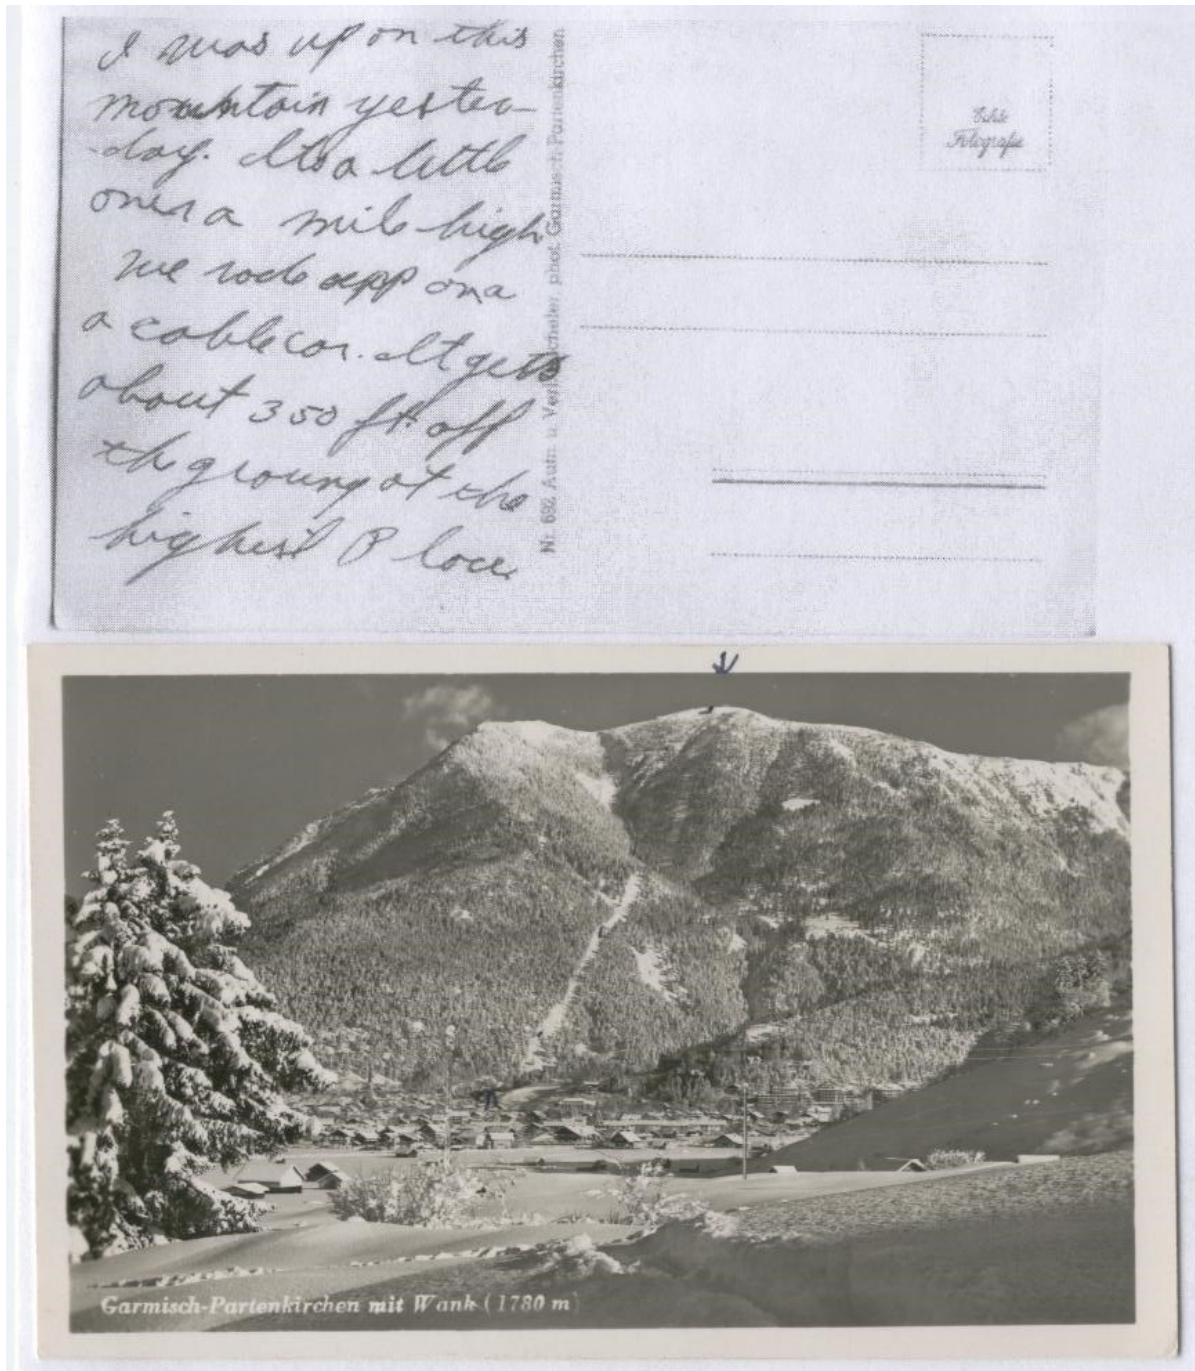 I was up on this
mountain yester-
-day. Its a little
over a mile high
We rode upp on a
a cable car. It gets
about 350 ft. off
the groung at the
highest Place
Nr. 692 Aufn. u. Verl. phot. Garmisch-Partenkirchen
Echte
Fotografie
Garmisch-Partenkirchen mit Wank (1780 m)